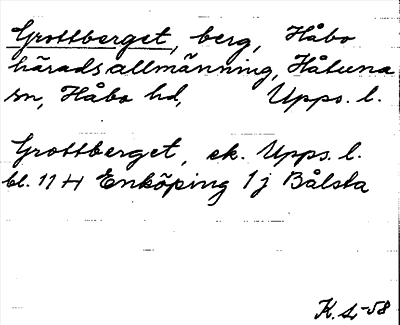 Grottberget, berg, Håbo
häradsallmänning, Håtuna
sn, Håbo hd, Upps. l.
Grottberget, ek. Upps. l.
bl. 11 H Enköping 1 j Bålsta
K. S. -58